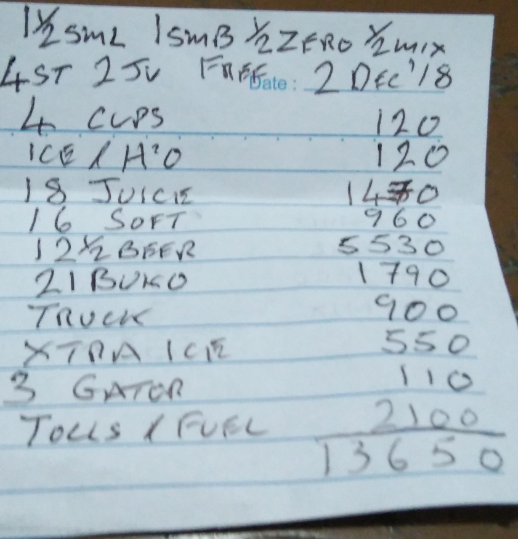 1½ SML 1 SMB ½ ZERO ½ MIX
4 ST 2 JU FREE Date: 2 DEC '18
4 CUPS 120
ICE / H²O 120
18 JUICE 1470
16 SOFT 960
12½ BEER 5530
21 BUKO 1790
TRUCK 900
XTRA ICE 550
3 GATOR 110
TOLLS / FUEL 2100
13650